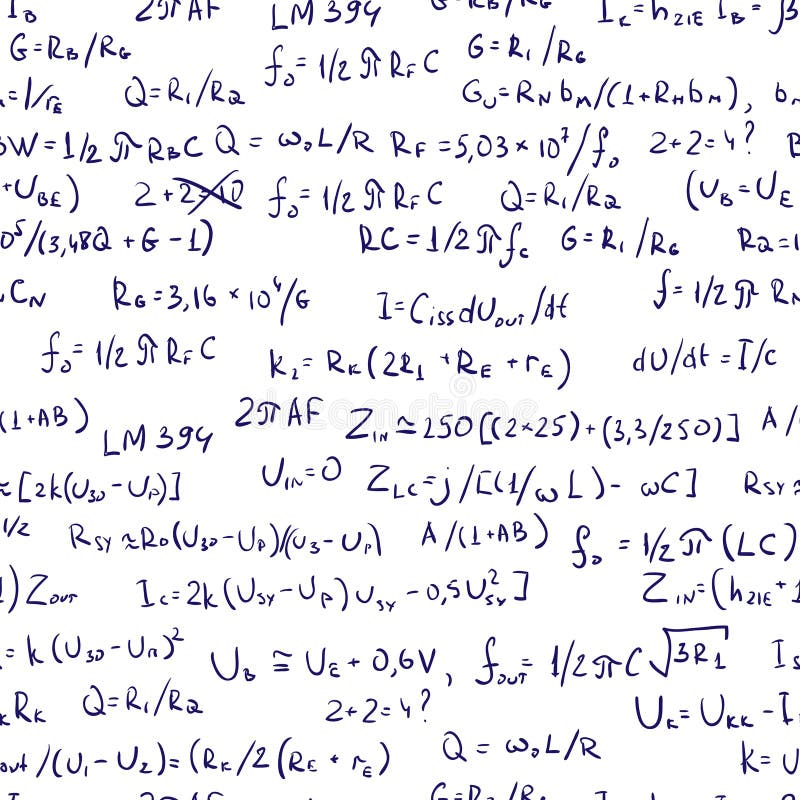 I_B 2πAF LM 394 G=R_B/R_G I_K=h_21E I_B=β
G=R_B/R_G f_0=1/2πR_F C G=R_1/R_G
=1/r_E Q=R_1/R_Q G_U=R_N b_M/(1+R_M b_M), b_M
BW=1/2πR_B C Q=ω_0L/R R_F=5,03×10^7/f_0 2+2=4?
+U_BE) 2+2=10 f_0=1/2πR_F C Q=R_1/R_Q (U_B=U_E
0^5/(3,48Q+G-1) RC=1/2πf_C G=R_1/R_G R_Q=1
C_N R_G=3,16×10^4/G I=C_iss dU_OUT/dt f=1/2πR_N
f_0=1/2πR_F C k_2=R_K(2R_1+R_E+r_E) dU/dt=I/C
(1+AB) LM 394 2πAF Z_IN≃250[(2×25)+(3,3/250)] A/
≈[2k(U_30-U_P)] U_IN=0 Z_LC=j/[(1/ωL)-ωC] R_SY≈
1/2 R_SY≈R_0(U_30-U_P)/(U_3-U_P) A/(1+AB) f_0=1/2π(LC)
)Z_OUT I_C=2k(U_SY-U_P)U_SY-0,5U_SY^2] Z_IN=(h_21E+1
=k(U_30-U_П)^2 U_B≅U_E+0,6V, f_OUT=1/2πC√3R_1 I_S
R_K Q=R_1/R_Q 2+2=4? U_K=U_KK-I
out/(U_1-U_2)=(R_K/2(R_E+r_E) Q=ω_0L/R k=U
2πAF G=R_B/R_G